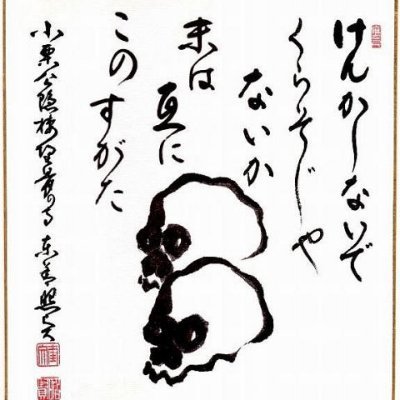 けんかしないで
くらそじゃ
ないか
末は互に
このすがた
小栗公隠棲地
東善照